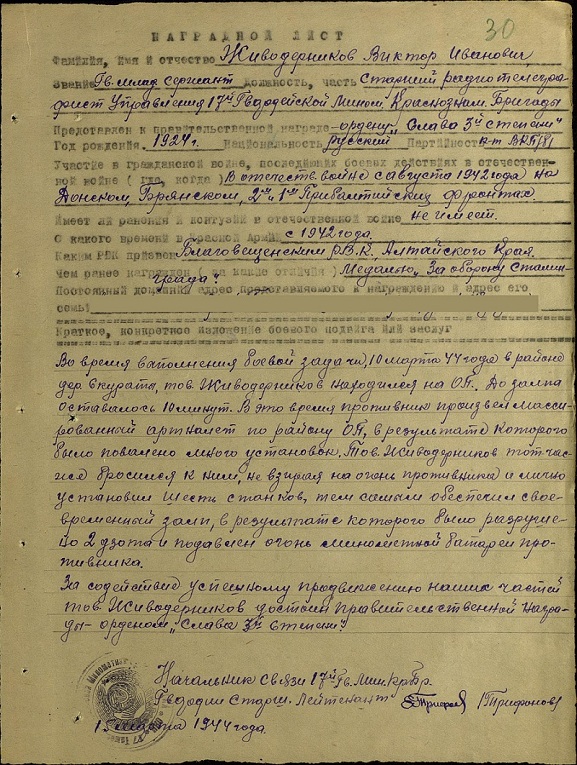 30
НАГРАДНОЙ ЛИСТ
Фамилия, имя и отчество Живодерников Виктор Иванович
Звание Гв. млад. Сержант Должность, часть Старший радиотелегра-
фист Управления 17й Гвардейской Мином. Краснознам. Бригады
Представлен к правительственной награде - ордену „Слава 3й степени"
Год рождения 1924г. Национальность русский Партийность к-т ВКП(б)
Участие в гражданской войне, последующих боевых действиях и отечествен-
ной войне (где, когда) В отечеств. войне с августа 1942 года на
Донском, Брянском, 2м и 1м Прибалтийских фронтах.
Имеет ли ранения и контузии в отечественной войне не имеет.
С какого времени в Красной Армии с 1942 года.
Каким РВК призван Благовещенским РВК, Алтайского Края.
Чем ранее награжден (за какие отличия) Медалью „За оборону Сталин-
града"
Постоянный домашний адрес представляемого к награждению и адрес его
семьи
Краткое, конкретное изложение боевого подвига или заслуг
Во время выполнения боевой задачи, 10 марта 44 года в районе
дер. Вкураты, тов. Живодерников находился на ОП. До залпа
оставалось 10 минут. В это время противник произвел масси-
рованный артналет по району ОП, в результате которого
было повалено много установок. Тов. Живодерников тотчас
же бросился к ним, не взирая на огонь противника и лично
установил шесть станков, тем самым обеспечил свое-
временный залп, в результате которого было разруше-
но 2 дзота и подавлен огонь минометной батареи про-
тивника.
За содействие успешному продвижению наших частей
тов. Живодерников достоин правительственной награ-
ды - орденом „Слава 3й степени"
Начальник связи 17й Гв. Мин. Кр. Бр.
Гвардии Старш. Лейтенант (Трифонов)
марта 1944 года.